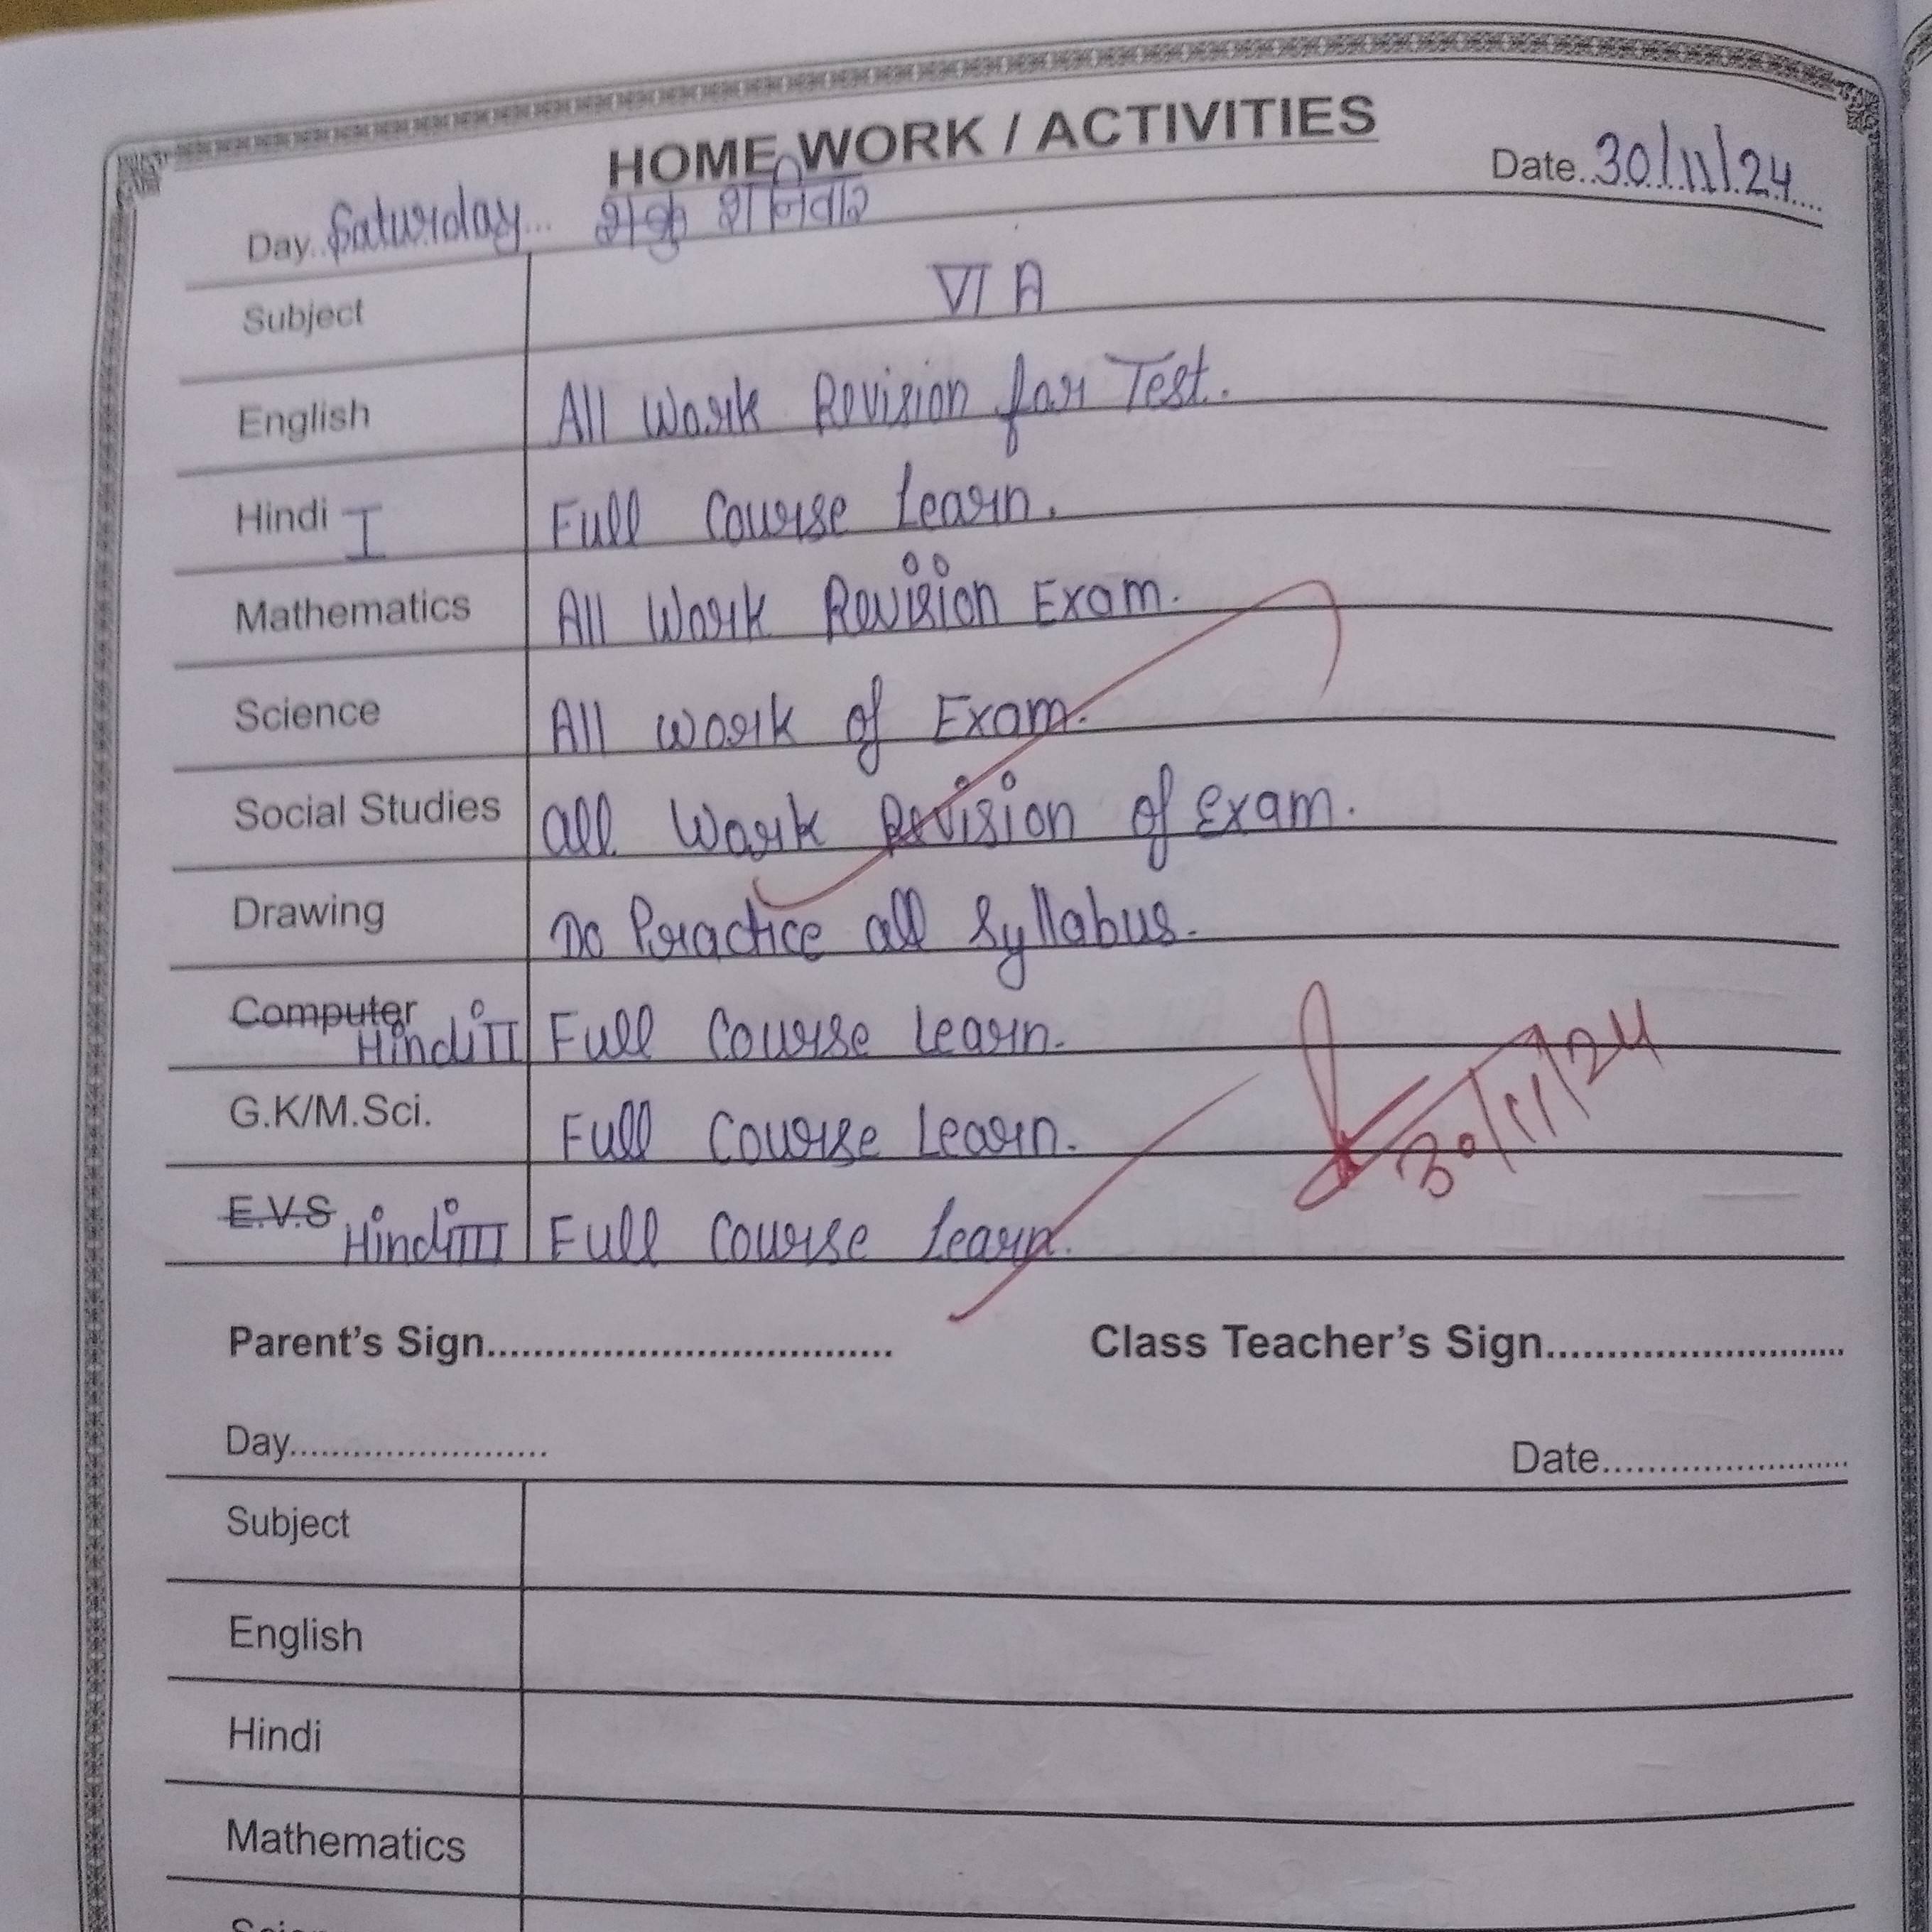 HOME WORK / ACTIVITIES
Day..Saturday... शनिवार Date..30/11/24....
Subject VI A
English All Work Revision for Test.
Hindi I Full Course Learn.
Mathematics All Work Revision Exam.
Science All work of Exam.
Social Studies all Work Revision of Exam.
Drawing Do Practice all Syllabus.
Computer Hindi II Full Course Learn.
G.K/M.Sci. Full Course Learn.
E.V.S Hindi III Full Course Learn.
30/11/24
Parent's Sign.................................. Class Teacher's Sign..........................
Day........................ Date........................
Subject
English
Hindi
Mathematics